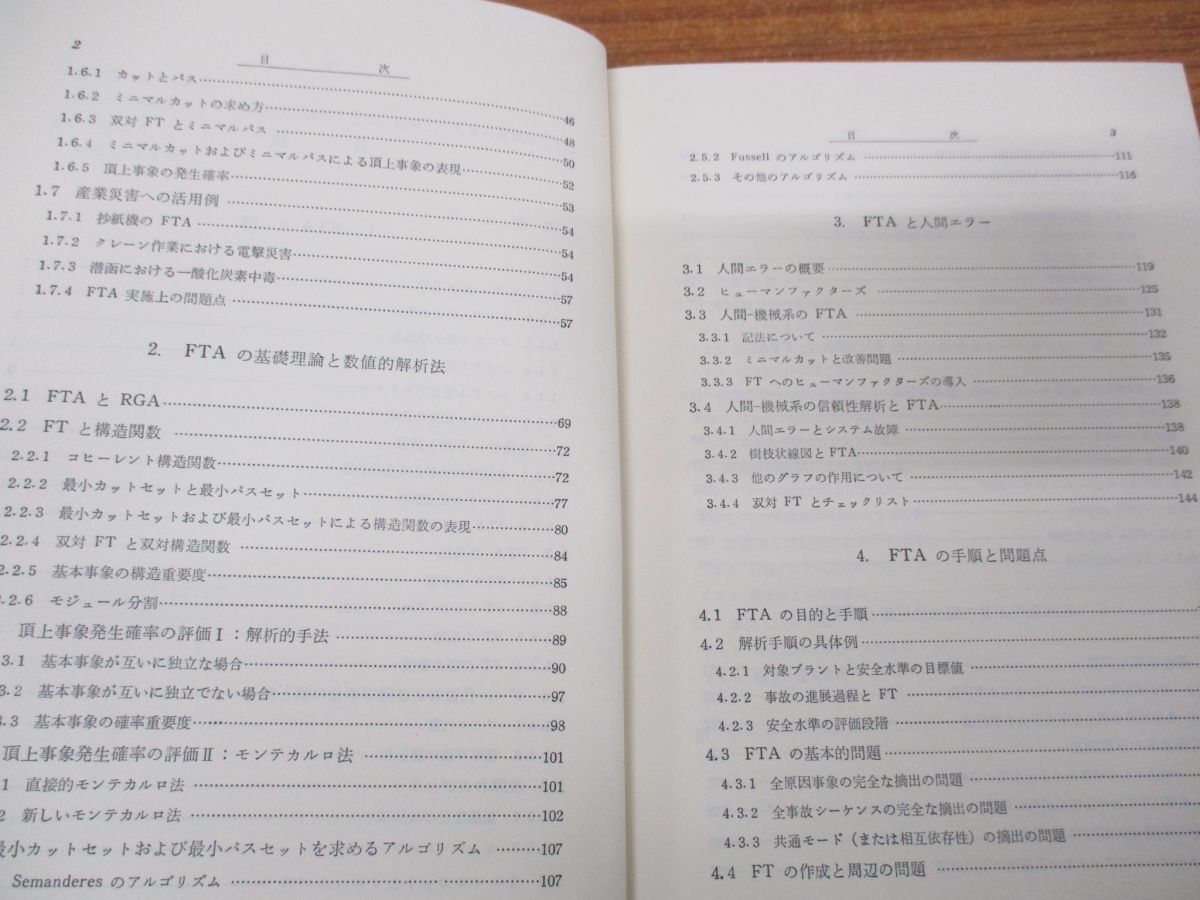 2
目 次
1.6.1 カットとパス……46
1.6.2 ミニマルカットの求め方……48
1.6.3 双対 FT とミニマルパス……50
1.6.4 ミニマルカットおよびミニマルパスによる頂上事象の表現……52
1.6.5 頂上事象の発生確率……53
1.7 産業災害への活用例……54
1.7.1 抄紙機の FTA……54
1.7.2 クレーン作業における電撃災害……54
1.7.3 潜函における一酸化炭素中毒……57
1.7.4 FTA 実施上の問題点……57
2. FTA の基礎理論と数値的解析法
2.1 FTA と RGA……69
2.2 FT と構造関数……72
2.2.1 コヒーレント構造関数……72
2.2.2 最小カットセットと最小パスセット……77
2.2.3 最小カットセットおよび最小パスセットによる構造関数の表現……80
2.2.4 双対 FT と双対構造関数……84
2.2.5 基本事象の構造重要度……85
2.2.6 モジュール分割……88
頂上事象発生確率の評価Ⅰ：解析的手法……89
3.1 基本事象が互いに独立な場合……90
3.2 基本事象が互いに独立でない場合……97
3.3 基本事象の確率重要度……98
頂上事象発生確率の評価Ⅱ：モンテカルロ法……101
1 直接的モンテカルロ法……101
2 新しいモンテカルロ法……102
最小カットセットおよび最小パスセットを求めるアルゴリズム……107
Semanderes のアルゴリズム……107
目 次
3
2.5.2 Fussell のアルゴリズム……111
2.5.3 その他のアルゴリズム……116
3. FTA と人間エラー
3.1 人間エラーの概要……119
3.2 ヒューマンファクターズ……125
3.3 人間-機械系の FTA……131
3.3.1 記法について……132
3.3.2 ミニマルカットと改善問題……135
3.3.3 FT へのヒューマンファクターズの導入……136
3.4 人間-機械系の信頼性解析と FTA……138
3.4.1 人間エラーとシステム故障……138
3.4.2 樹枝状線図とFTA……140
3.4.3 他のグラフの作用について……142
3.4.4 双対 FT とチェックリスト……144
4. FTA の手順と問題点
4.1 FTA の目的と手順……
4.2 解析手順の具体例……
4.2.1 対象プラントと安全水準の目標値……
4.2.2 事故の進展過程と FT……
4.2.3 安全水準の評価段階……
4.3 FTA の基本的問題……
4.3.1 全原因事象の完全な摘出の問題……
4.3.2 全事故シーケンスの完全な摘出の問題……
4.3.3 共通モード（または相互依存性）の摘出の問題……
4.4 FT の作成と周辺の問題……